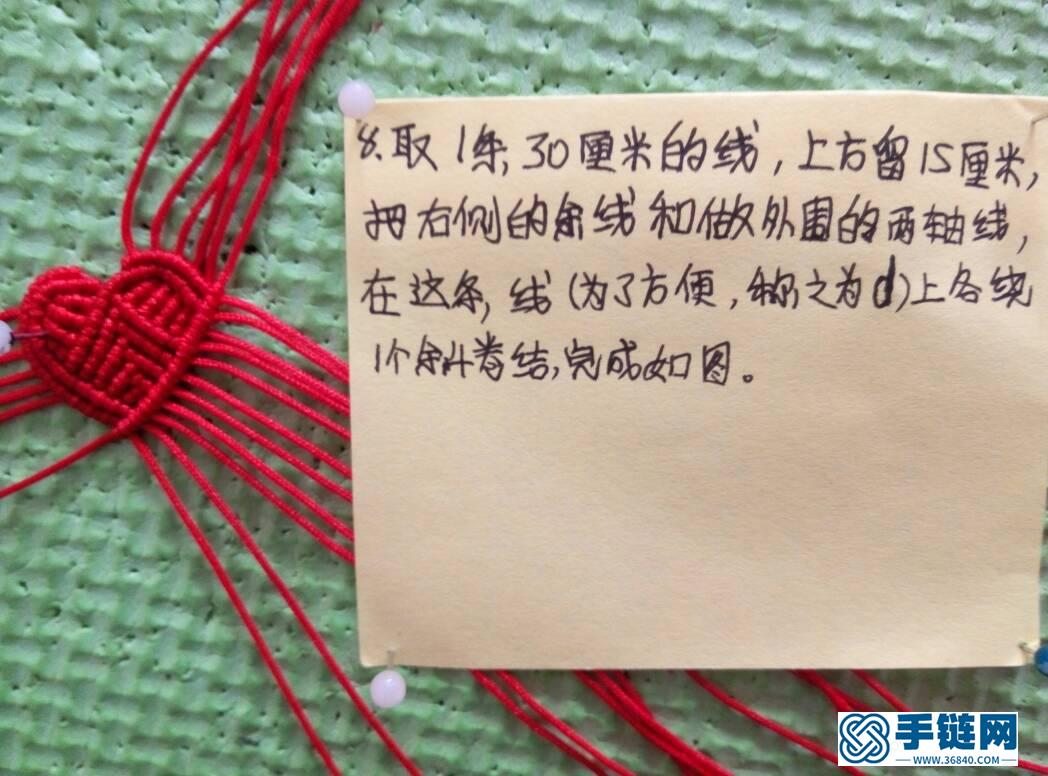 8.取1条30厘米的线，上方留15厘米，
把右侧的余线和做外围的两轴线，
在这条线(为了方便，称之为d)上各绕
1个斜卷结，完成如图。
手链网
WWW.36840.COM